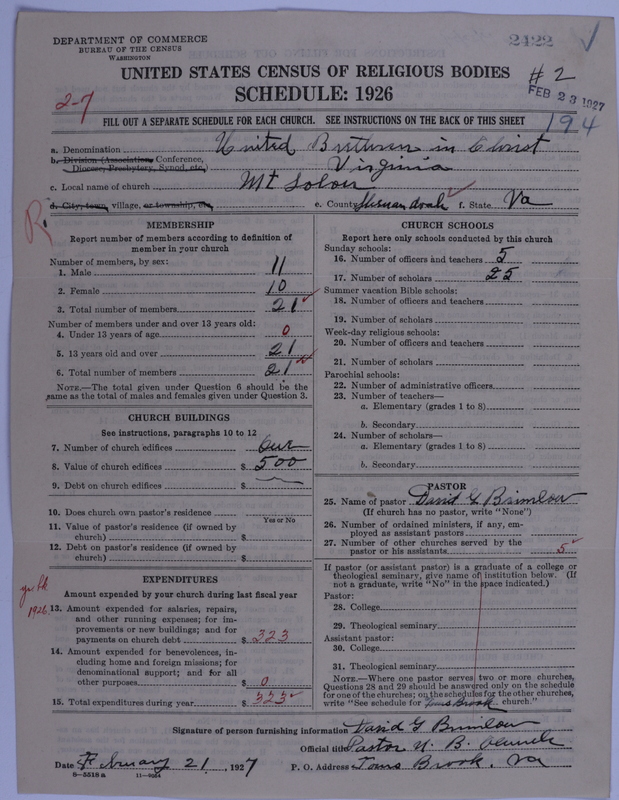 DEPARTMENT OF COMMERCE
BUREAU OF THE CENSUS
WASHINGTON
2422
UNITED STATES CENSUS OF RELIGIOUS BODIES
# 2
SCHEDULE: 1926
FEB 23 1927
2-7
194
FILL OUT A SEPARATE SCHEDULE FOR EACH CHURCH. SEE INSTRUCTIONS ON THE BACK OF THIS SHEET
a. Denomination United Brethren in Christ
b. Division (Association, Conference, Diocese, Presbytery, Synod, etc.) Virginia
c. Local name of church Mt
d. City, town, village, or township, etc. e. County Shenandoah f. State Va
R
MEMBERSHIP
Report number of members according to definition of
member in your church
Number of members, by sex:
1. Male 11
2. Female 10
3. Total number of members 21
Number of members under and over 13 years old:
4. Under 13 years of age 0
5. 13 years old and over 21
6. Total number of members 21
NOTE.—The total given under Question 6 should be the
same as the total of males and females given under Question 3.
CHURCH BUILDINGS
See instructions, paragraphs 10 to 12
7. Number of church edifices One
8. Value of church edifices $ 500
9. Debt on church edifices $
10. Does church own pastor's residence
Yes or No
11. Value of pastor's residence (if owned by
church) $
12. Debt on pastor's residence (if owned by
church) $
EXPENDITURES
Amount expended by your church during last fiscal year
1926
13. Amount expended for salaries, repairs,
and other running expenses; for im-
provements or new buildings; and for
payments on church debt $ 323
14. Amount expended for benevolences, in-
cluding home and foreign missions; for
denominational support; and for all
other purposes $ 0
15. Total expenditures during year $ 323
CHURCH SCHOOLS
Report here only schools conducted by this church
Sunday schools:
16. Number of officers and teachers 5
17. Number of scholars 25
Summer vacation Bible schools:
18. Number of officers and teachers
19. Number of scholars
Week-day religious schools:
20. Number of officers and teachers
21. Number of scholars
Parochial schools:
22. Number of administrative officers
23. Number of teachers—
a. Elementary (grades 1 to 8)
b. Secondary
24. Number of scholars—
a. Elementary (grades 1 to 8)
b. Secondary
PASTOR
25. Name of pastor David G Brimlow
(If church has no pastor, write "None")
26. Number of ordained ministers, if any, em-
ployed as assistant pastors
27. Number of other churches served by the
pastor or his assistants 5
If pastor (or assistant pastor) is a graduate of a college or
theological seminary, give name of institution below. (If
not a graduate, write "No" in the space indicated.)
Pastor:
28. College
29. Theological seminary
Assistant pastor:
30. College
31. Theological seminary
NOTE.—Where one pastor serves two or more churches,
Questions 28 and 29 should be answered only on the schedule
for one of the churches; on the schedules for the other churches,
write "See schedule for Toms Brook church."
Signature of person furnishing information David G Brimlow
Official title Pastor U. B. Church
Date February 21, 1927 P. O. Address Toms Brook, Va
8—5518 a 11—9024